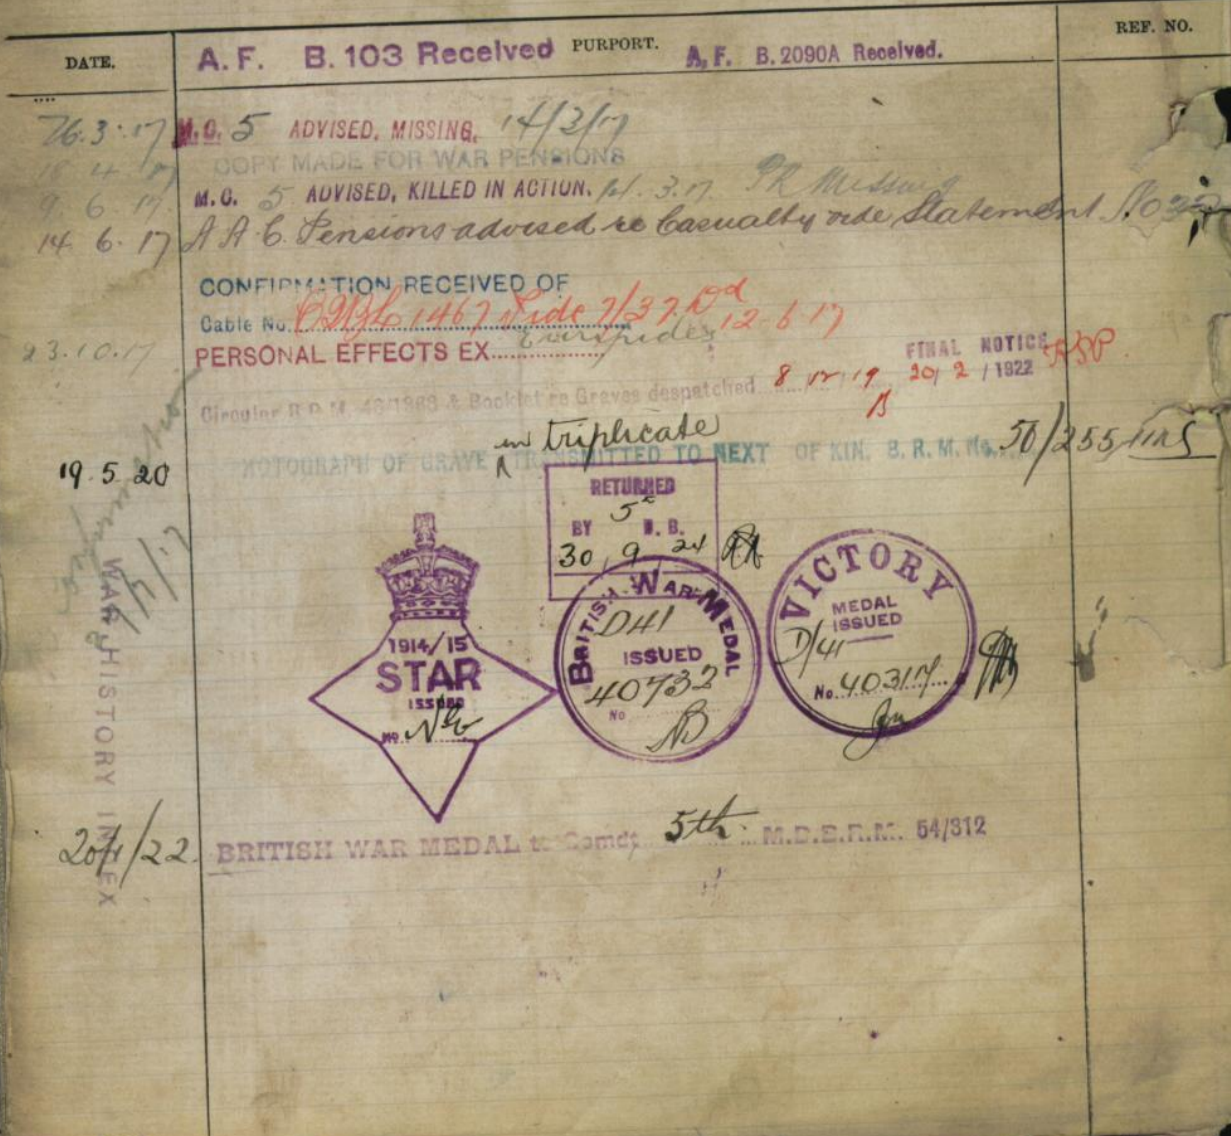 DATE. PURPORT. REF. NO.
A. F. B. 103 Received A. F. B. 2090A Received.
26.3.17 M.C. 5 ADVISED, MISSING, 14/3/17
18 4 17 COPY MADE FOR WAR PENSIONS
9. 6. 17. M.C. 5 ADVISED, KILLED IN ACTION. 3.17. Missing
14. 6. 17 Pensions advised re Casualty vide Statement No
CONFIRMATION RECEIVED OF
Cable No. 1467 12-6-17
23.10.17 PERSONAL EFFECTS EX Euripides
FINAL NOTICE
20/2/1922
Circular B.R.M. & Booklet re Graves despatched 8 12 19
in triplicate
19.5.20 PHOTOGRAPH OF GRAVE TRANSMITTED TO NEXT OF KIN. B. R. M. No. 50/255
RETURNED
BY 5
30 9 24
1914/15
STAR
ISSUED
NO.
BRITISH WAR MEDAL
D41
ISSUED
40732
No
VICTORY
MEDAL
ISSUED
D/41
No. 40317
WAR HISTORY INDEX
/22. BRITISH WAR MEDAL to Comdt 5th. M.D.E.R.M. 54/312